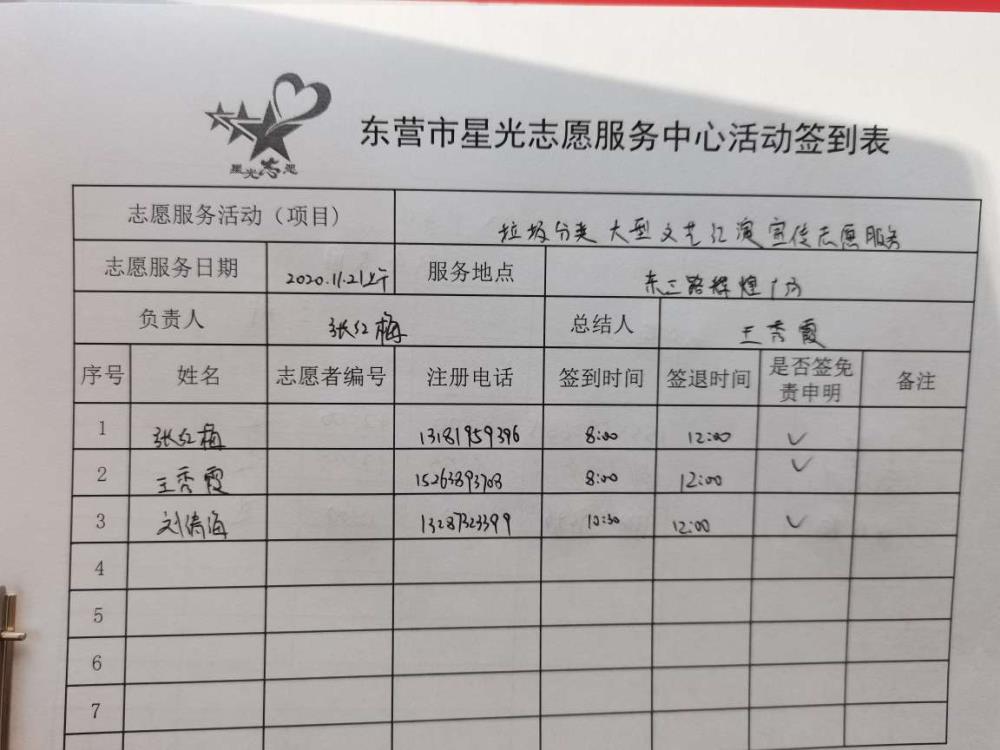 星光志愿
东营市星光志愿服务中心活动签到表
志愿服务活动（项目） 垃圾分类大型文艺汇演宣传志愿服务
志愿服务日期 2020.11.21上午 服务地点 东三路辉煌广场
负责人 张红梅 总结人 王秀霞
序号 姓名 志愿者编号 注册电话 签到时间 签退时间 是否签免责申明 备注
1 张红梅 13181959396 8:00 12:00 ✓
2 王秀霞 15263893708 8:00 12:00 ✓
3 刘涛海 13287323399 10:30 12:00 ✓
4
5
6
7